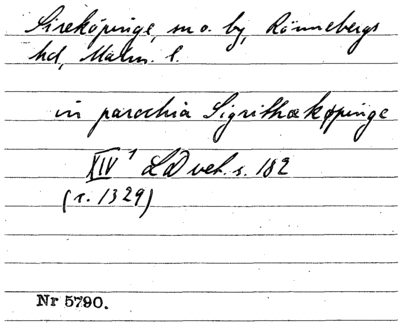 Sireköpinge, sn o. by, Rönnebergs
hd, Malm. l.
in parochia Sigrithækøpinge
XIV¹ LD vet. s. 182
(r. 1329)
Nr 5790.